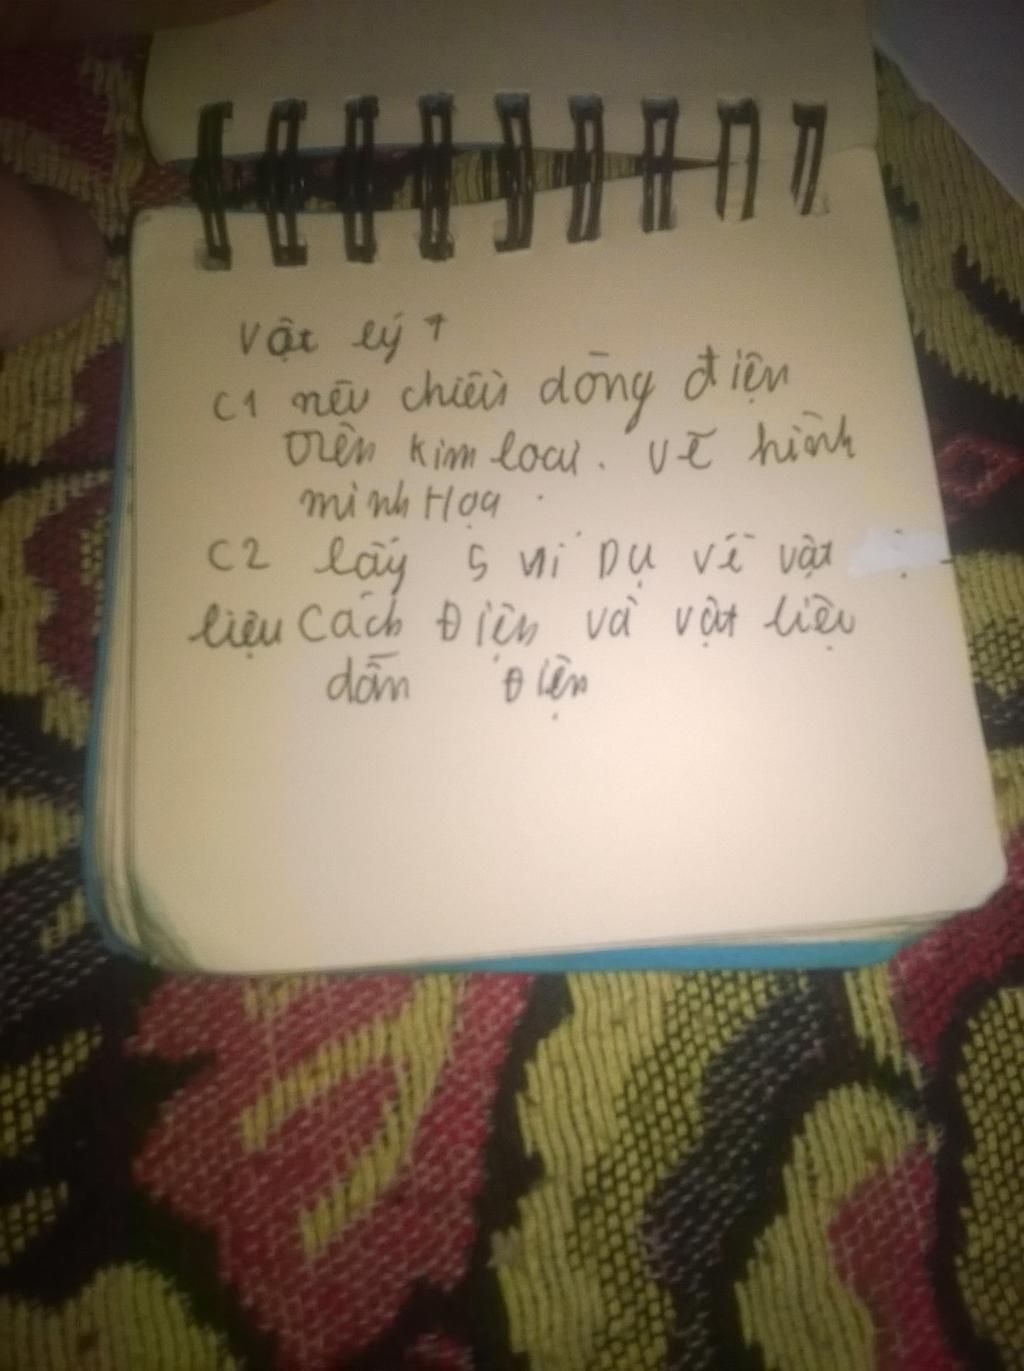 Vật lý 7
C1 nêu chiều dòng điện
trên kim loại. vẽ hình
minh Họa.
C2 lấy 5 ví Dụ về vật
liệu Cách Điện và vật liệu
dẫn Điện